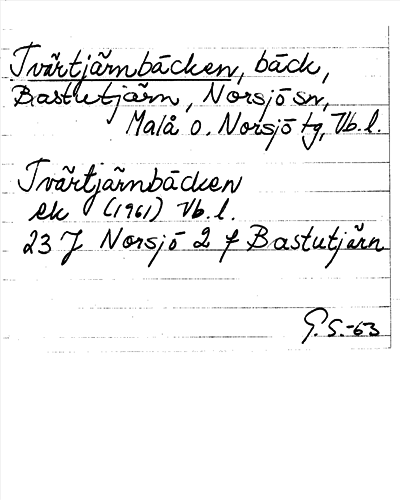 Tvärtjärnbäcken, bäck,
Bastutjärn, Norsjö sn,
Malå o. Norsjö tg, Vb. l.
Tvärtjärnbäcken
ek (1961) Vb. l.
23 J Norsjö 2 f Bastutjärn
G. S. -63